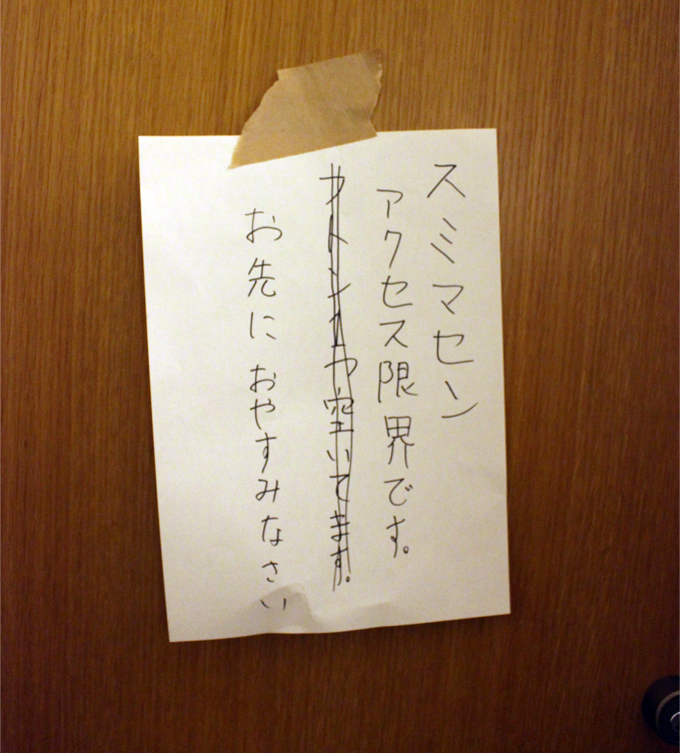 スミマセン
アクセス限界です。
フトン1つ空いてます。
お先に おやすみなさい